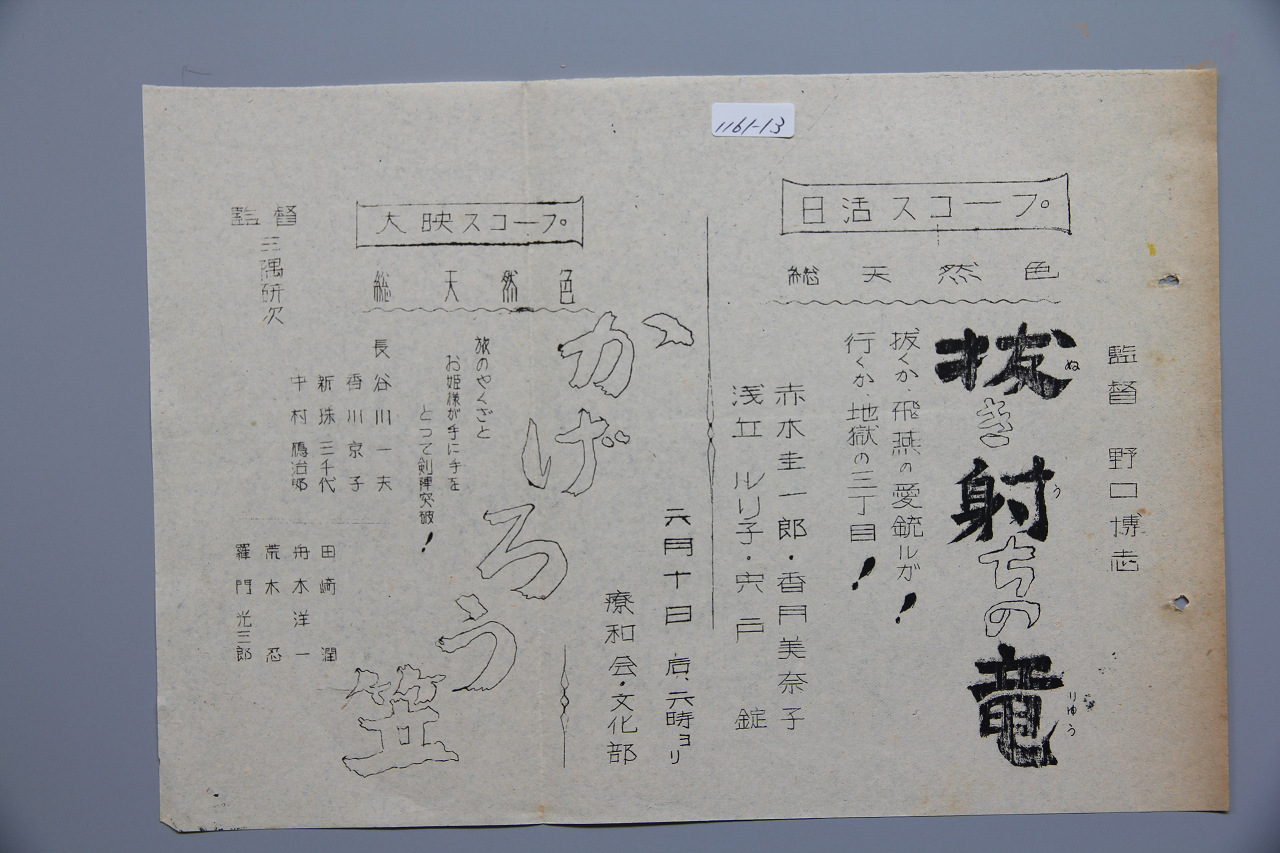 1161-13
日活スコープ
総天然色
監督 野口博志
抜き射ちの竜
ぬ
う
りゅう
抜くか、飛燕の愛銃ルガー!
行くか、地獄の三丁目!
赤木圭一郎・香月美奈子
浅丘ルリ子・宍戸 錠
六月十日 后、六時ヨリ
療和会・文化部
大映スコープ
総天然色
かげろう笠
旅のやくざと
お姫様が手に手を
とって剣陣突破!
長谷川一夫
香川京子
新珠三千代
中村鴈治郎
田崎 潤
舟木洋一
荒木 忍
羅門光三郎
監督 三隅研次